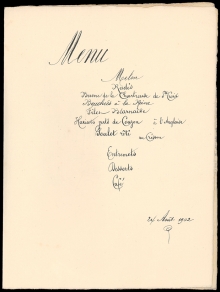 Menu
Melon
Radis
Beurre de la Chartreuse de
Bouchées à la Reine
Filet Béarnaise
Haricots verts de à l'Anglaise
Poulet rôti au Cresson
Entremets
Desserts
Café
24 Août 1902